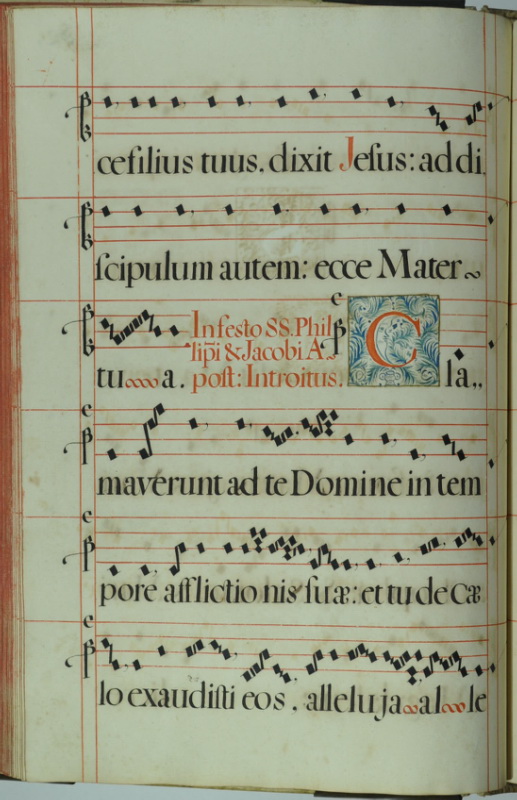 cefilius tuus. dixit Jesus: ad di
scipulum autem: ecce Mater~
tu~~~a. In festo SS. Phil
lip̄i & Jacobi A~
post: Introitus. C la,,
maverunt ad te Domine in tem
pore afflictio nis suæ: et tu de Cæ
lo exaudisti eos. alleluja~~al~~le